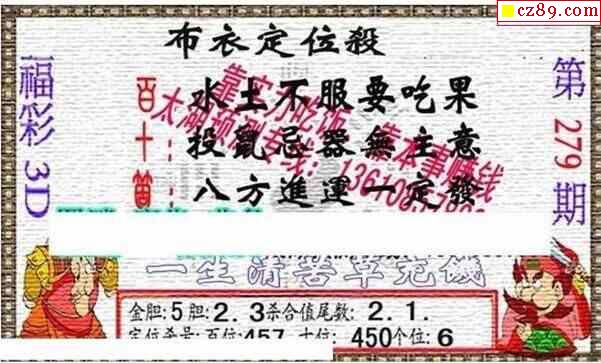 cz89.com
布衣定位殺
福彩3D
第279期
百
十
水土不服要吃果
投鼠忌器無主意
八方進運一定發
靠实力吃饭 靠本事赚钱
一生清苦草充饑
金胆:5胆:2.3杀合值尾数:2.1.
定位杀号:百位:457 十位:450个位:6